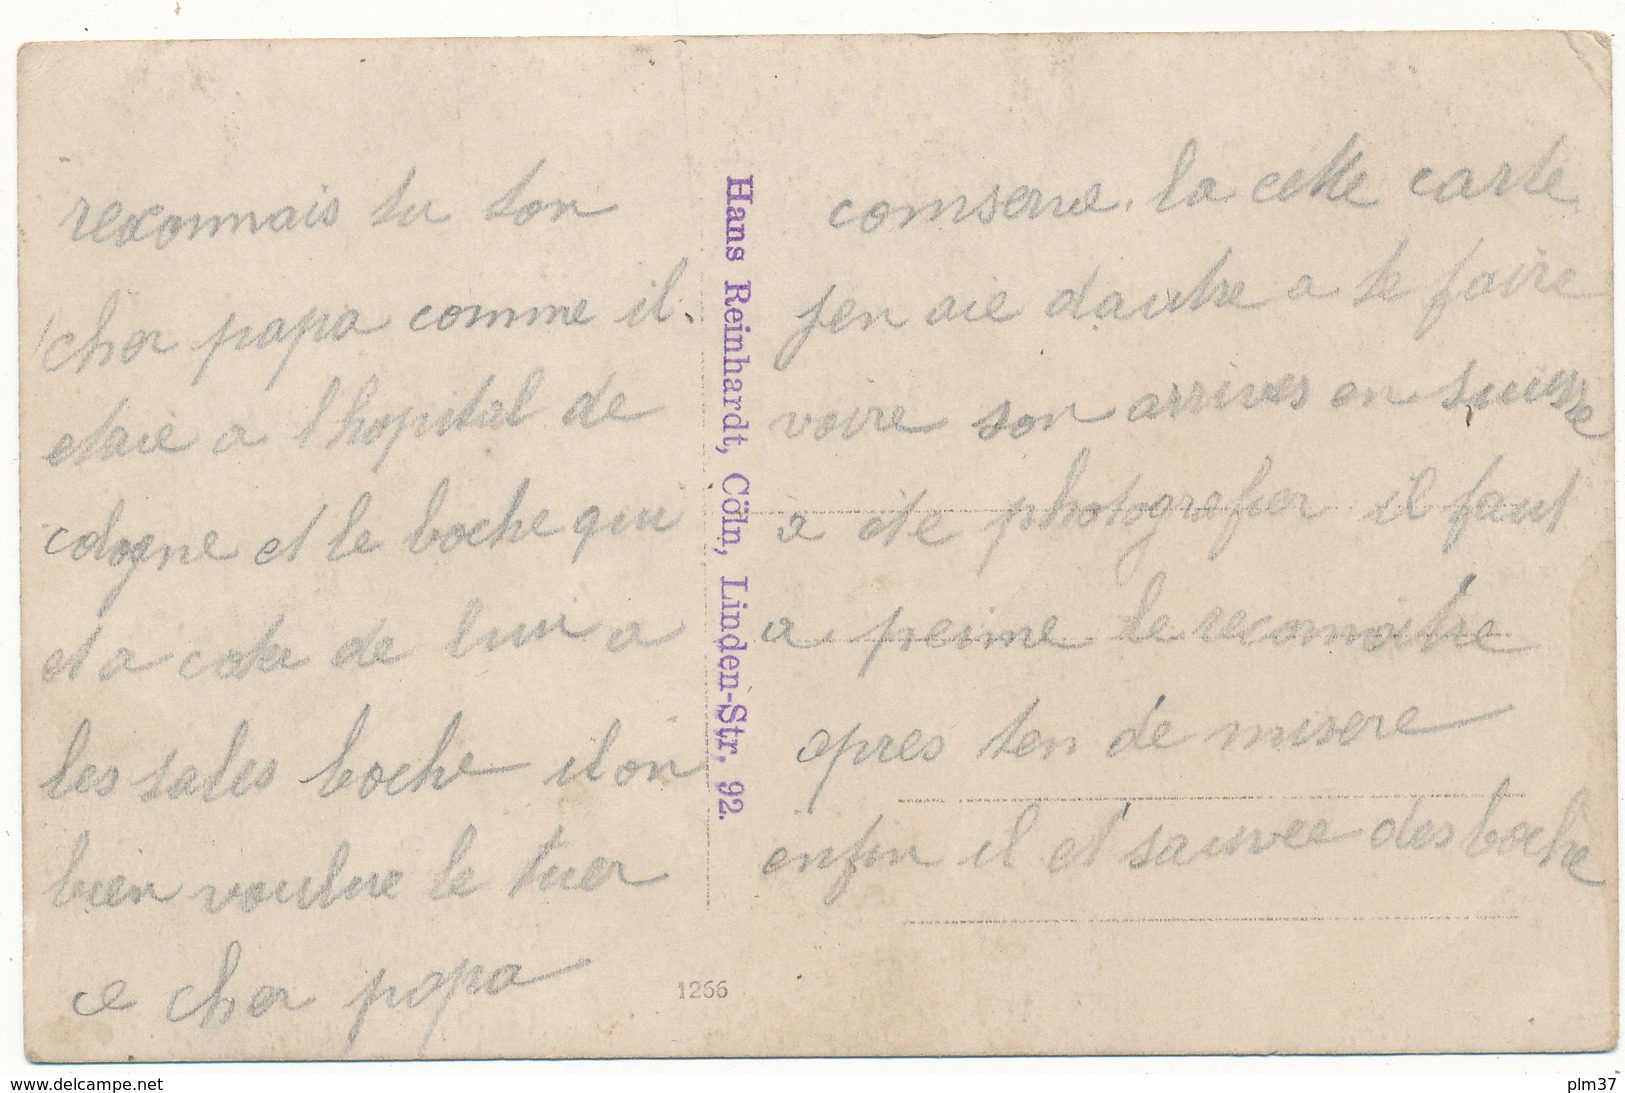 reconnais tu ton
cher papa comme il
etaie a l'hopital de
cologne et le boche qui
et a coter de lui a
les sales boche il on
bien voulue le tuer
ce cher papa
Hans Reinhardt, Cöln, Linden-Str. 92.
1266
comserve la cette carte
jen aie dautre a te faire
voire son arrives en suisse
a éte photografier il faut
a peime le reconnaitre
apres ten de misere
enfin il et sauvee des boche
www.delcampe.net
plm37